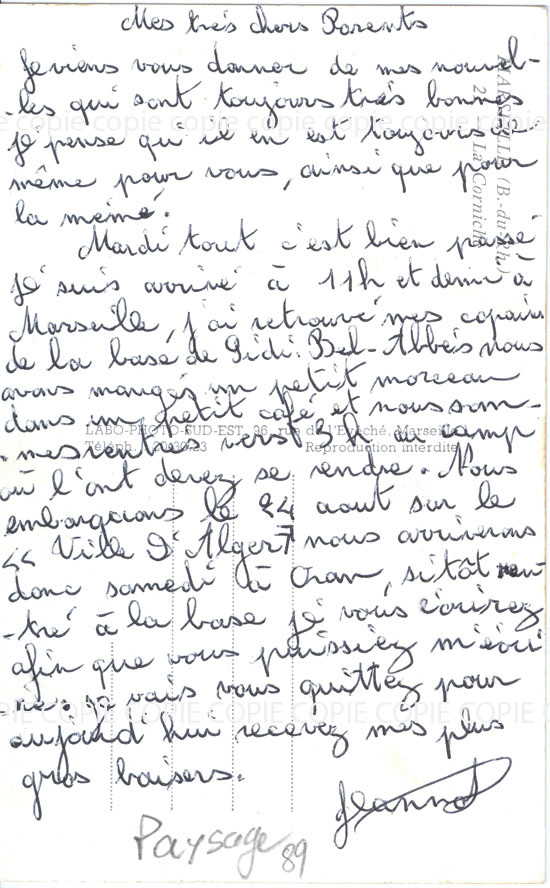 Mes très chers Parents
Je viens vous donner de mes nouvel-
-les qui sont toujours très bonnes
je pense qui il en est toujours de
même pour vous, ainsi que pour
la mémé.
Mardi tout c'est bien passé
je suis arrivé à 11h et demi à
Marseille, j'ai retrouvé mes copains
de la base de Sidi. Bel-Abbès nous
avons mangés un petit morceau
dans un petit café et nous som-
-mes rentrés vers 3h au camp
où l'ont devez se rendre. Nous
embarquons le 24 aout sur le
<< Ville D'Alger7 nous arriverons
donc samedi à Oran, sitôt ren
-tré à la base je vous écrirez
afin que vous puissiez m'écri
-re. je vais vous quittez pour
aujourd'hui recevez mes plus
gros baisers.
Jeannot
Paysage 89
MARSEILLE (B.-du-Rh.)
La Corniche
LABO-PHOTO-SUD-EST, 96, rue de l'Evêché, Marseille
Téléph. 20-30-23 Reproduction interdite
COPIE COPIE COPIE COPIE COPIE COPIE
COPIE COPIE COPIE COPIE COPIE COPIE